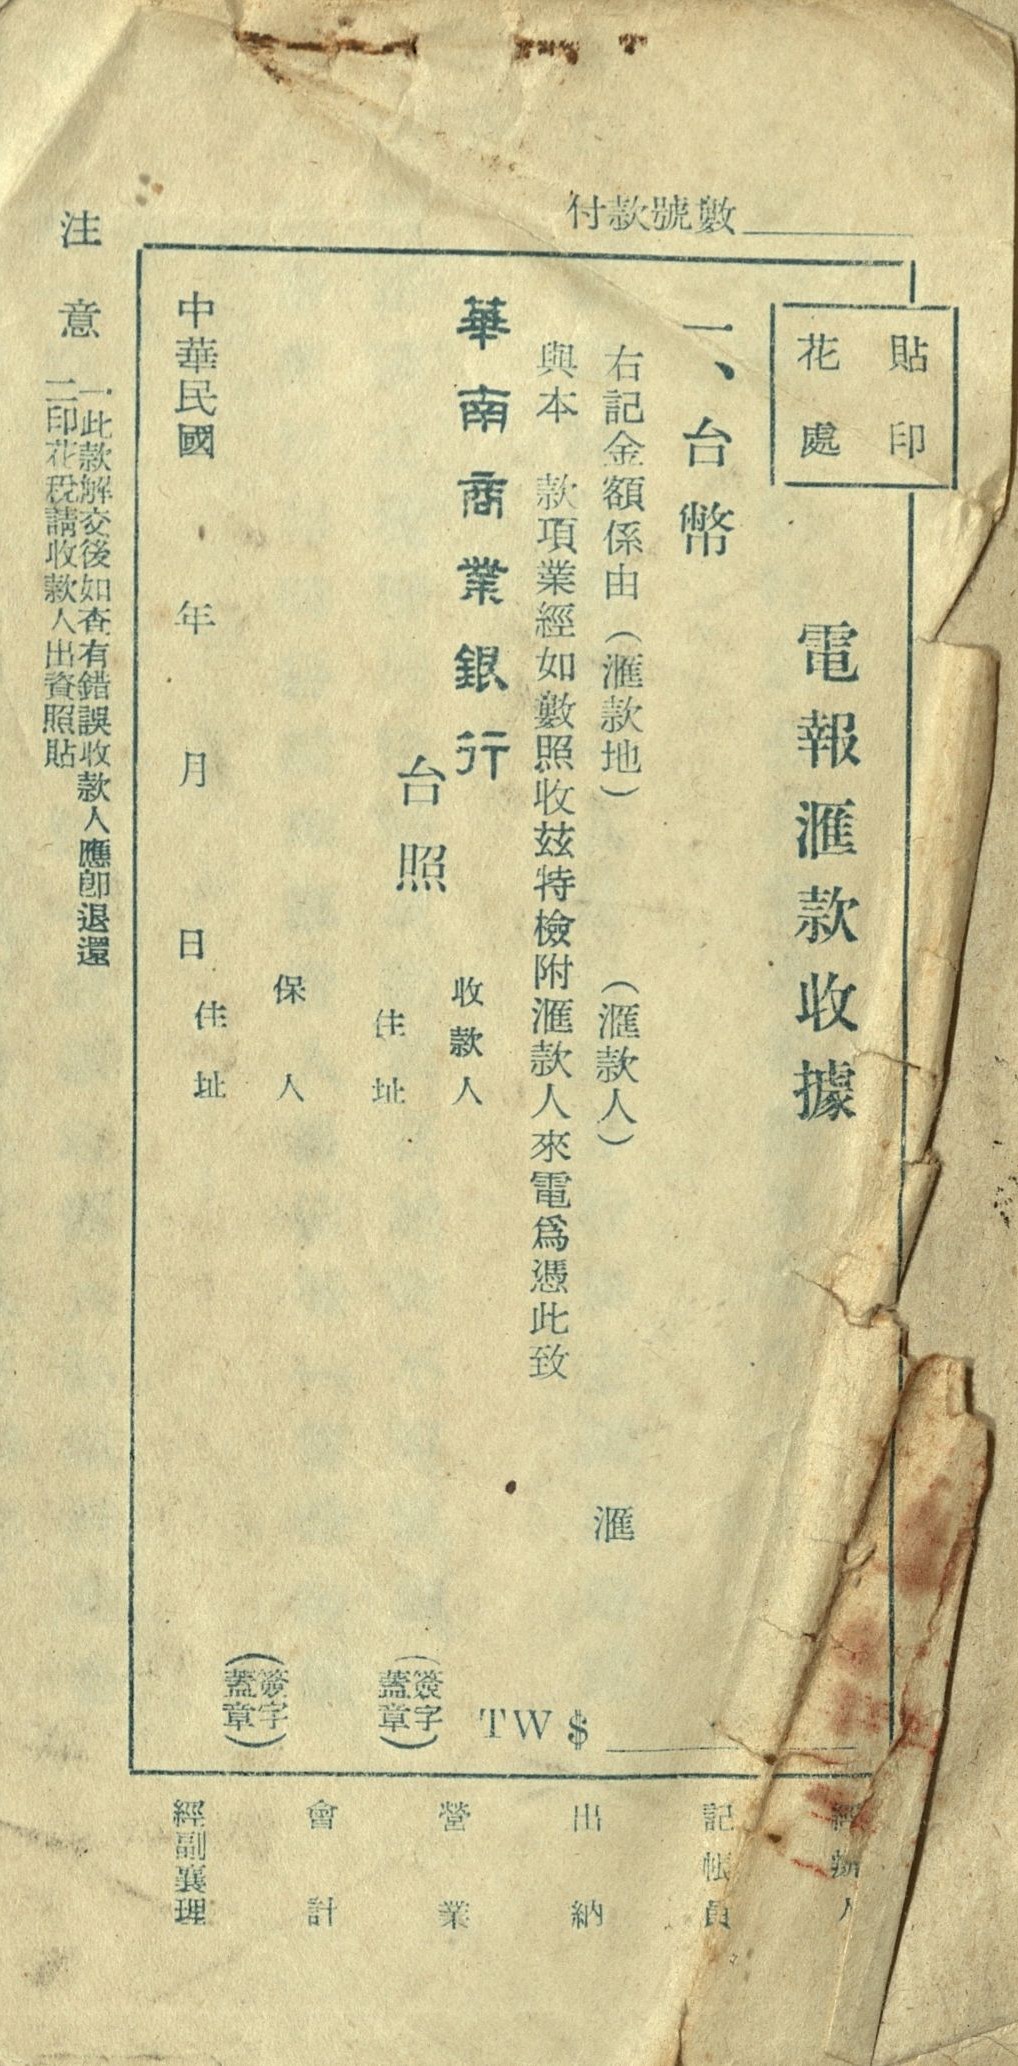 付款號數
貼印
花處
電報滙款收據
一、台幣
TW$
右記金額係由（滙款地）（滙款人）滙
與本　款項業經如數照收玆特檢附滙款人來電爲憑此致
華南商業銀行
台照
收款人
（簽字蓋章）
住址
保人
（簽字蓋章）
住址
中華民國　年　月　日
注意
一此款解交後如查有錯誤收款人應卽退還
二印花稅請收款人出資照貼
經辦人
記帳員
出納
營業
會計
經副襄理